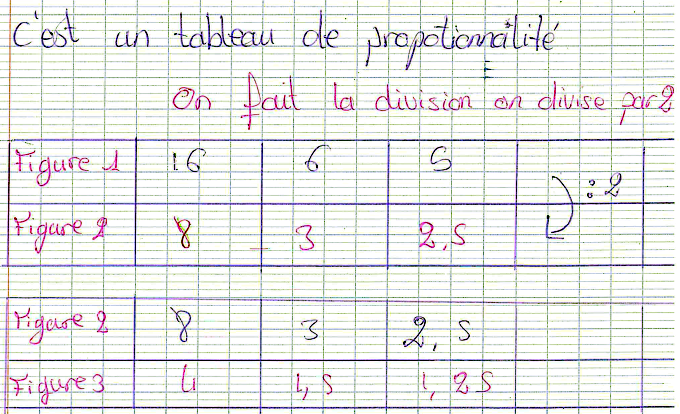 c'est un tableau de propotionnalité
On fait la division on divise par 2
Figure 1 16 6 5
:2
Figure 2 8 3 2,5
Figure 2 8 3 2,5
Figure 3 4 1,5 1,25